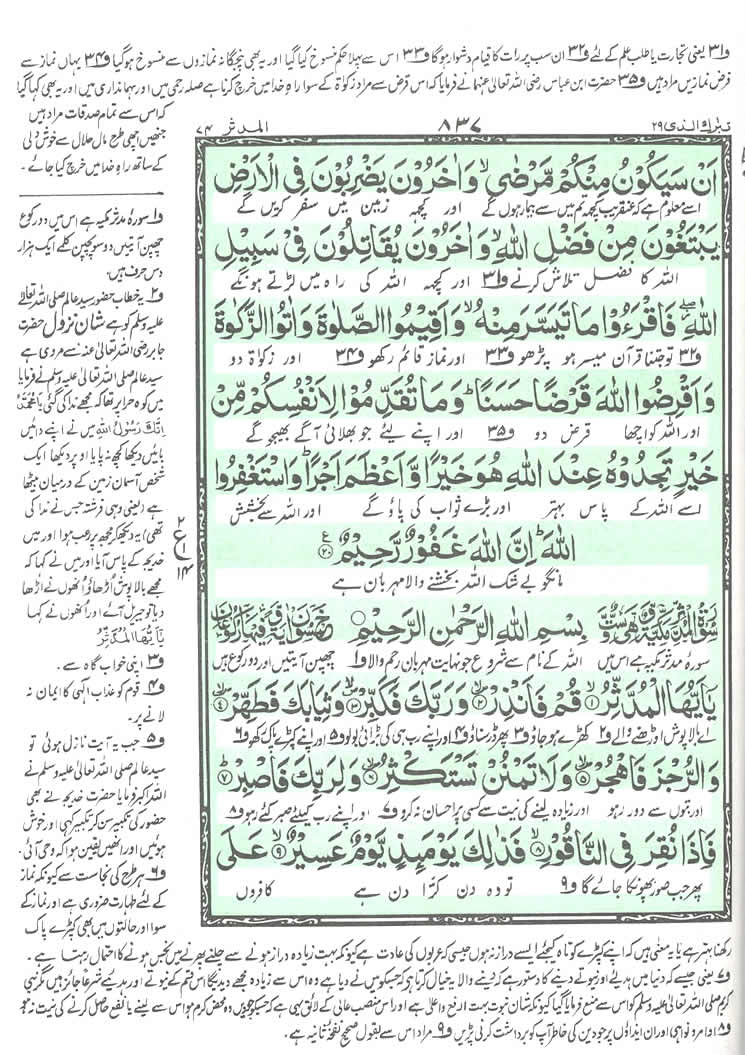 و۳۱ یعنی تجارت یا طلب علم کے لئے و۳۲ ان سب پر رات کا قیام دشوار ہوگا و۳۳ اس سے پہلا حکم منسوخ کیا گیا اور یہ بھی پنجگانہ نمازوں سے منسوخ ہوگیا و۳۴ یہاں نماز سے
فرض نمازیں مراد ہیں و۳۵ حضرت ابن عباس رضی اللہ تعالیٰ عنہما نے فرمایا کہ اس قرض سے مراد زکوٰۃ کے سوا راہِ خدا میں خرچ کرنا ہے صلہ رحمی میں اور مہمانداری میں اور یہ بھی کہا گیا
کہ اس سے تمام صدقات مراد ہیں
جنھیں اچھی طرح مال حلال سے خوش دلی
کے ساتھ راہِ خدا میں خرچ کیا جائے ۔
تبٰرك الذی ۲۹
۸۳۷
المدثر ۷۴
اَنْ سَیَكُوْنُ مِنْكُمْ مَّرْضٰىۙ وَ اٰخَرُوْنَ یَضْرِبُوْنَ فِی الْاَرْضِ
اسے معلوم ہے کہ عنقریب کچھ تم میں سے بیمار ہوں گے اور کچھ زمین میں سفر کریں گے
یَبْتَغُوْنَ مِنْ فَضْلِ اللّٰهِۙ وَ اٰخَرُوْنَ یُقَاتِلُوْنَ فِیْ سَبِیْلِ
اللہ کا فضل تلاش کرنے و۳۱ اور کچھ اللہ کی راہ میں لڑتے ہونگے
اللّٰهِ ۖ٘ فَاقْرَءُوْا مَا تَیَسَّرَ مِنْهُۙ وَ اَقِیْمُوا الصَّلٰوةَ وَ اٰتُوا الزَّكٰوةَ
و۳۲ تو جتنا قرآن میسر ہو پڑھو و۳۳ اور نماز قائم رکھو و۳۴ اور زکوٰۃ دو
وَ اَقْرِضُوا اللّٰهَ قَرْضًا حَسَنًاؕ وَ مَا تُقَدِّمُوْا لِاَنْفُسِكُمْ مِّنْ
اور اللہ کو اچھا قرض دو و۳۵ اور اپنے لیئے جو بھلائی آگے بھیجو گے
خَیْرٍ تَجِدُوْهُ عِنْدَ اللّٰهِ هُوَ خَیْرًا وَّ اَعْظَمَ اَجْرًاؕ وَ اسْتَغْفِرُوا
اسے اللہ کے پاس بہتر اور بڑے ثواب کی پاؤ گے اور اللہ سے بخشش
اللّٰهَؕ اِنَّ اللّٰهَ غَفُوْرٌ رَّحِیْمٌ۠ ۲۰
مانگو بے شک اللہ بخشنے والا مہربان ہے
سورۃ المدثر مکیۃ وھی ست بِسْمِ اللّٰهِ الرَّحْمٰنِ الرَّحِیْمِ خمسون اٰیۃ و فیھا رکوعان
سورۂ مدثر مکیہ ہے اس میں اللہ کے نام سے شروع جو نہایت مہربان رحم والا و۱ چھپن آیتیں اور دو رکوع ہیں
یٰۤاَیُّهَا الْمُدَّثِّرُۙ۱ قُمْ فَاَنْذِرْ۪ۙ۲ وَ رَبَّكَ فَكَبِّرْ۪ۙ۳ وَ ثِیَابَكَ فَطَهِّرْ۪ۙ۴
اے بالا پوش اوڑھنے والے و۲ کھڑے ہو جاؤ و۳ پھر ڈر سناؤ و۴ اور اپنے رب ہی کی بڑائی بولو و۵ اور اپنے کپڑے پاک رکھو و۶
وَ الرُّجْزَ فَاهْجُرْ۪ۙ۵ وَ لَا تَمْنُنْ تَسْتَكْثِرُ۪ۙ۶ وَ لِرَبِّكَ فَاصْبِرْؕ۷
اور بتوں سے دور رہو اور زیادہ لینے کی نیت سے کسی پر احسان نہ کرو و۷ اور اپنے رب کیلئے صبر کئے رہو و۸
فَاِذَا نُقِرَ فِی النَّاقُوْرِۙ۸ فَذٰلِكَ یَوْمَىٕذٍ یَّوْمٌ عَسِیْرٌۙ۹ عَلَى
پھر جب صور پھونکا جائے گا و۹ تو وہ دن کڑا دن ہے کافروں
۲
ع
۱
۱۴
و۱ سورۂ مدثر مکیہ ہے اس میں دو رکوع
چھپن آیتیں دو سو پچپن کلمے ایک ہزار
دس حرف ہیں
و۲ یہ خطاب حضور سید عالم صلی اللہ تعالیٰ
علیہ وسلم کو ہے شان نزول حضرت
جابر رضی اللہ تعالیٰ عنہ سے مروی ہے
سید عالم صلی اللہ تعالیٰ علیہ وسلم نے فرمایا
میں کوہ حرا پر تھا کہ مجھے ندا کی گئی یَا مُحَمَّدُ
اِنَّكَ رَسُوْلُ اللّٰهِ میں نے اپنے دائیں
بائیں دیکھا کچھ نہ پایا اوپر دیکھا ایک
شخص آسمان زمین کے درمیان بیٹھا
ہے (یعنی وہی فرشتہ جس نے ندا کی
تھی) یہ دیکھ کر مجھ پر رعب ہوا اور میں
خدیجہ کے پاس آیا اور میں نے کہا کہ
مجھے بالا پوش اُڑھاؤ اُنھوں نے اڑھا
دیا تو جبریل آئے اور اُنھوں نے کہا
یٰۤاَیُّهَا الْمُدَّثِّرُ
و۳ اپنی خواب گاہ سے ۔
و۴ قوم کو عذاب الٰہی کا ایمان نہ
لانے پر ۔
و۵ جب یہ آیت نازل ہوئی تو
سید عالم صلی اللہ تعالیٰ علیہ وسلم نے
اللہ اکبر فرمایا حضرت خدیجہ نے بھی
حضور کی تکبیر سن کر تکبیر کہی اور خوش
ہوئیں اور انھیں یقین ہوا کہ وحی آئی ۔
و۶ ہر طرح کی نجاست سے کیونکہ نماز
کے لئے طہارت ضروری ہے اور نماز کے
سوا اور حالتوں میں بھی کپڑے پاک
رکھنا بہتر ہے یا یہ معنی ہیں کہ اپنے کپڑے کوتاہ کیجئے ایسے دراز نہ ہوں جیسی کہ عربوں کی عادت ہے کیونکہ بہت زیادہ دراز ہونے سے چلنے پھرنے میں نجس ہونے کا احتمال رہتا ہے ۔
و۷ یعنی جیسے کہ دنیا میں ہدیے اور نیوتے دینے کا دستور ہے کہ دینے والا یہ خیال کرتا ہے کہ جس کو میں نے دیا ہے وہ اس سے زیادہ مجھے دیدیگا اس قسم کے نیوتے اور ہدیے شرعاً جائز ہیں مگر نبی
کریم صلی اللہ تعالیٰ علیہ وسلم کو اس سے منع فرمایا گیا کیونکہ شان نبوت بہت ارفع و اعلیٰ ہے اور اس منصب عالی کے لائق یہی ہے کہ جس کو جو دیں وہ محض کرم ہو اس سے لینے یا نفع حاصل کرنے کی نیت نہ ہو
و۸ اوامر و نواہی اور ان ایذاؤں پر جو دین کی خاطر آپ کو برداشت کرنی پڑیں و۹ مراد اس سے بقول صحیح نفخۂ ثانیہ ہے ۔